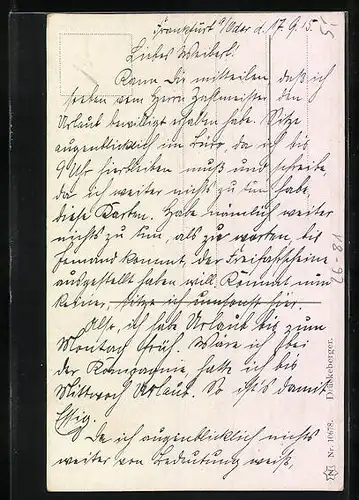 Frankfurt a/Oder d. 17.9.15
Liebes Weiberl!
Kann Dir mitteilen, daß ich
soeben vom Herrn Zahlmeister den
Urlaub bewilligt erhalten habe. Sitze
augenblicklich im Büro, da ich bis
9 Uhr hierbleiben muß und schreibe
da ich weiter nichts zu tun habe,
diese Karten. Habe nämlich weiter
nichts zu tun, als zu warten, bis
jemand kommt, der Freifahrscheine
ausgestellt haben will. Kommt nun
keiner, sitze ich umsonst hier.
Also, ich habe Urlaub bis zum
Montag früh. Wäre ich bei
der Kompagnie, hätte ich bis
Mittwoch Urlaub. So ist's damit
Essig.
Da ich augenblicklich nichts
weiter von Bedeutung weiß,
26-81
Nr. 10678. Drückeberger.